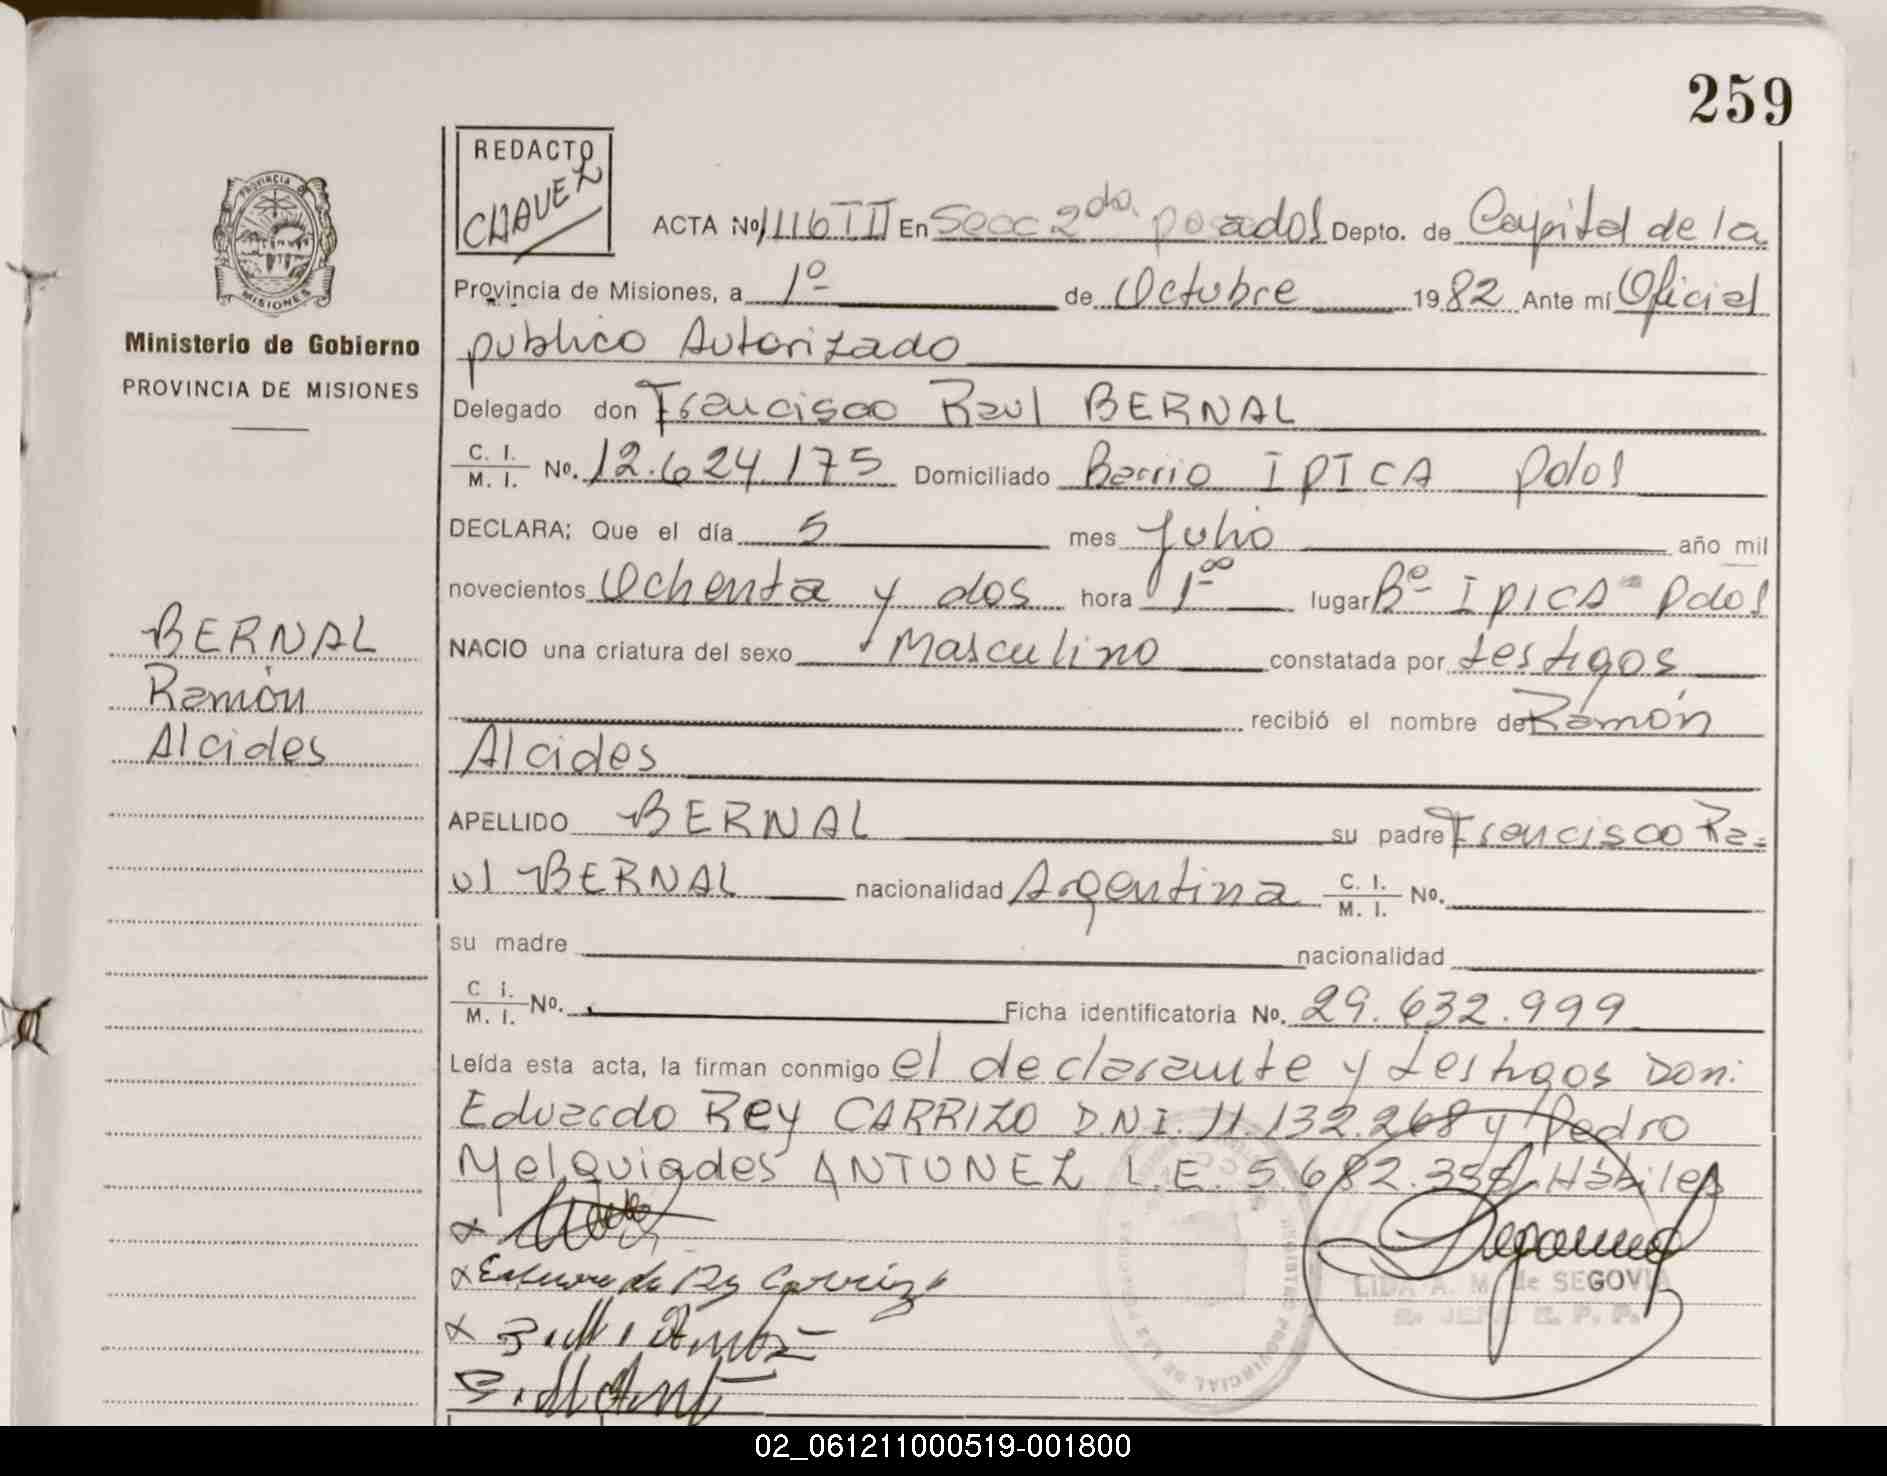 259
REDACTO
CHAVEZ
ACTA Nº 1116 III En Secc 2da. posadas Depto. de Capital de la
Provincia de Misiones, a 1º de Octubre 1982 Ante mí Oficial
publico Autorizado
Delegado don Francisco Raul BERNAL
C. I. / M. I. Nº. 12.624.175 Domiciliado Barrio IPICA Pdas
DECLARA; Que el día 5 mes Julio año mil
novecientos Ochenta y dos hora 1°° lugar Bº IPICA Pdas
NACIO una criatura del sexo Masculino constatada por testigos
recibió el nombre de Ramón
Alcides
APELLIDO BERNAL su padre Francisco Ra=
ul BERNAL nacionalidad Argentina C. I. / M. I. Nº.
su madre nacionalidad
C I. / M. I. Nº. Ficha identificatoria Nº. 29.632.999
Leída esta acta, la firman conmigo el declarante y testigos Don:
Eduardo Rey CARRIZO D.N.I. 11.132.268 y Pedro
Melquiades ANTUNEZ L.E. 5.682.358 Hábiles
LIDA A. M. de SEGOVIA
PROVINCIA DE
MISIONES
Ministerio de Gobierno
PROVINCIA DE MISIONES
BERNAL
Ramón
Alcides
REGISTRO PROVINCIAL DE LAS PERSONAS
02_061211000519-001800